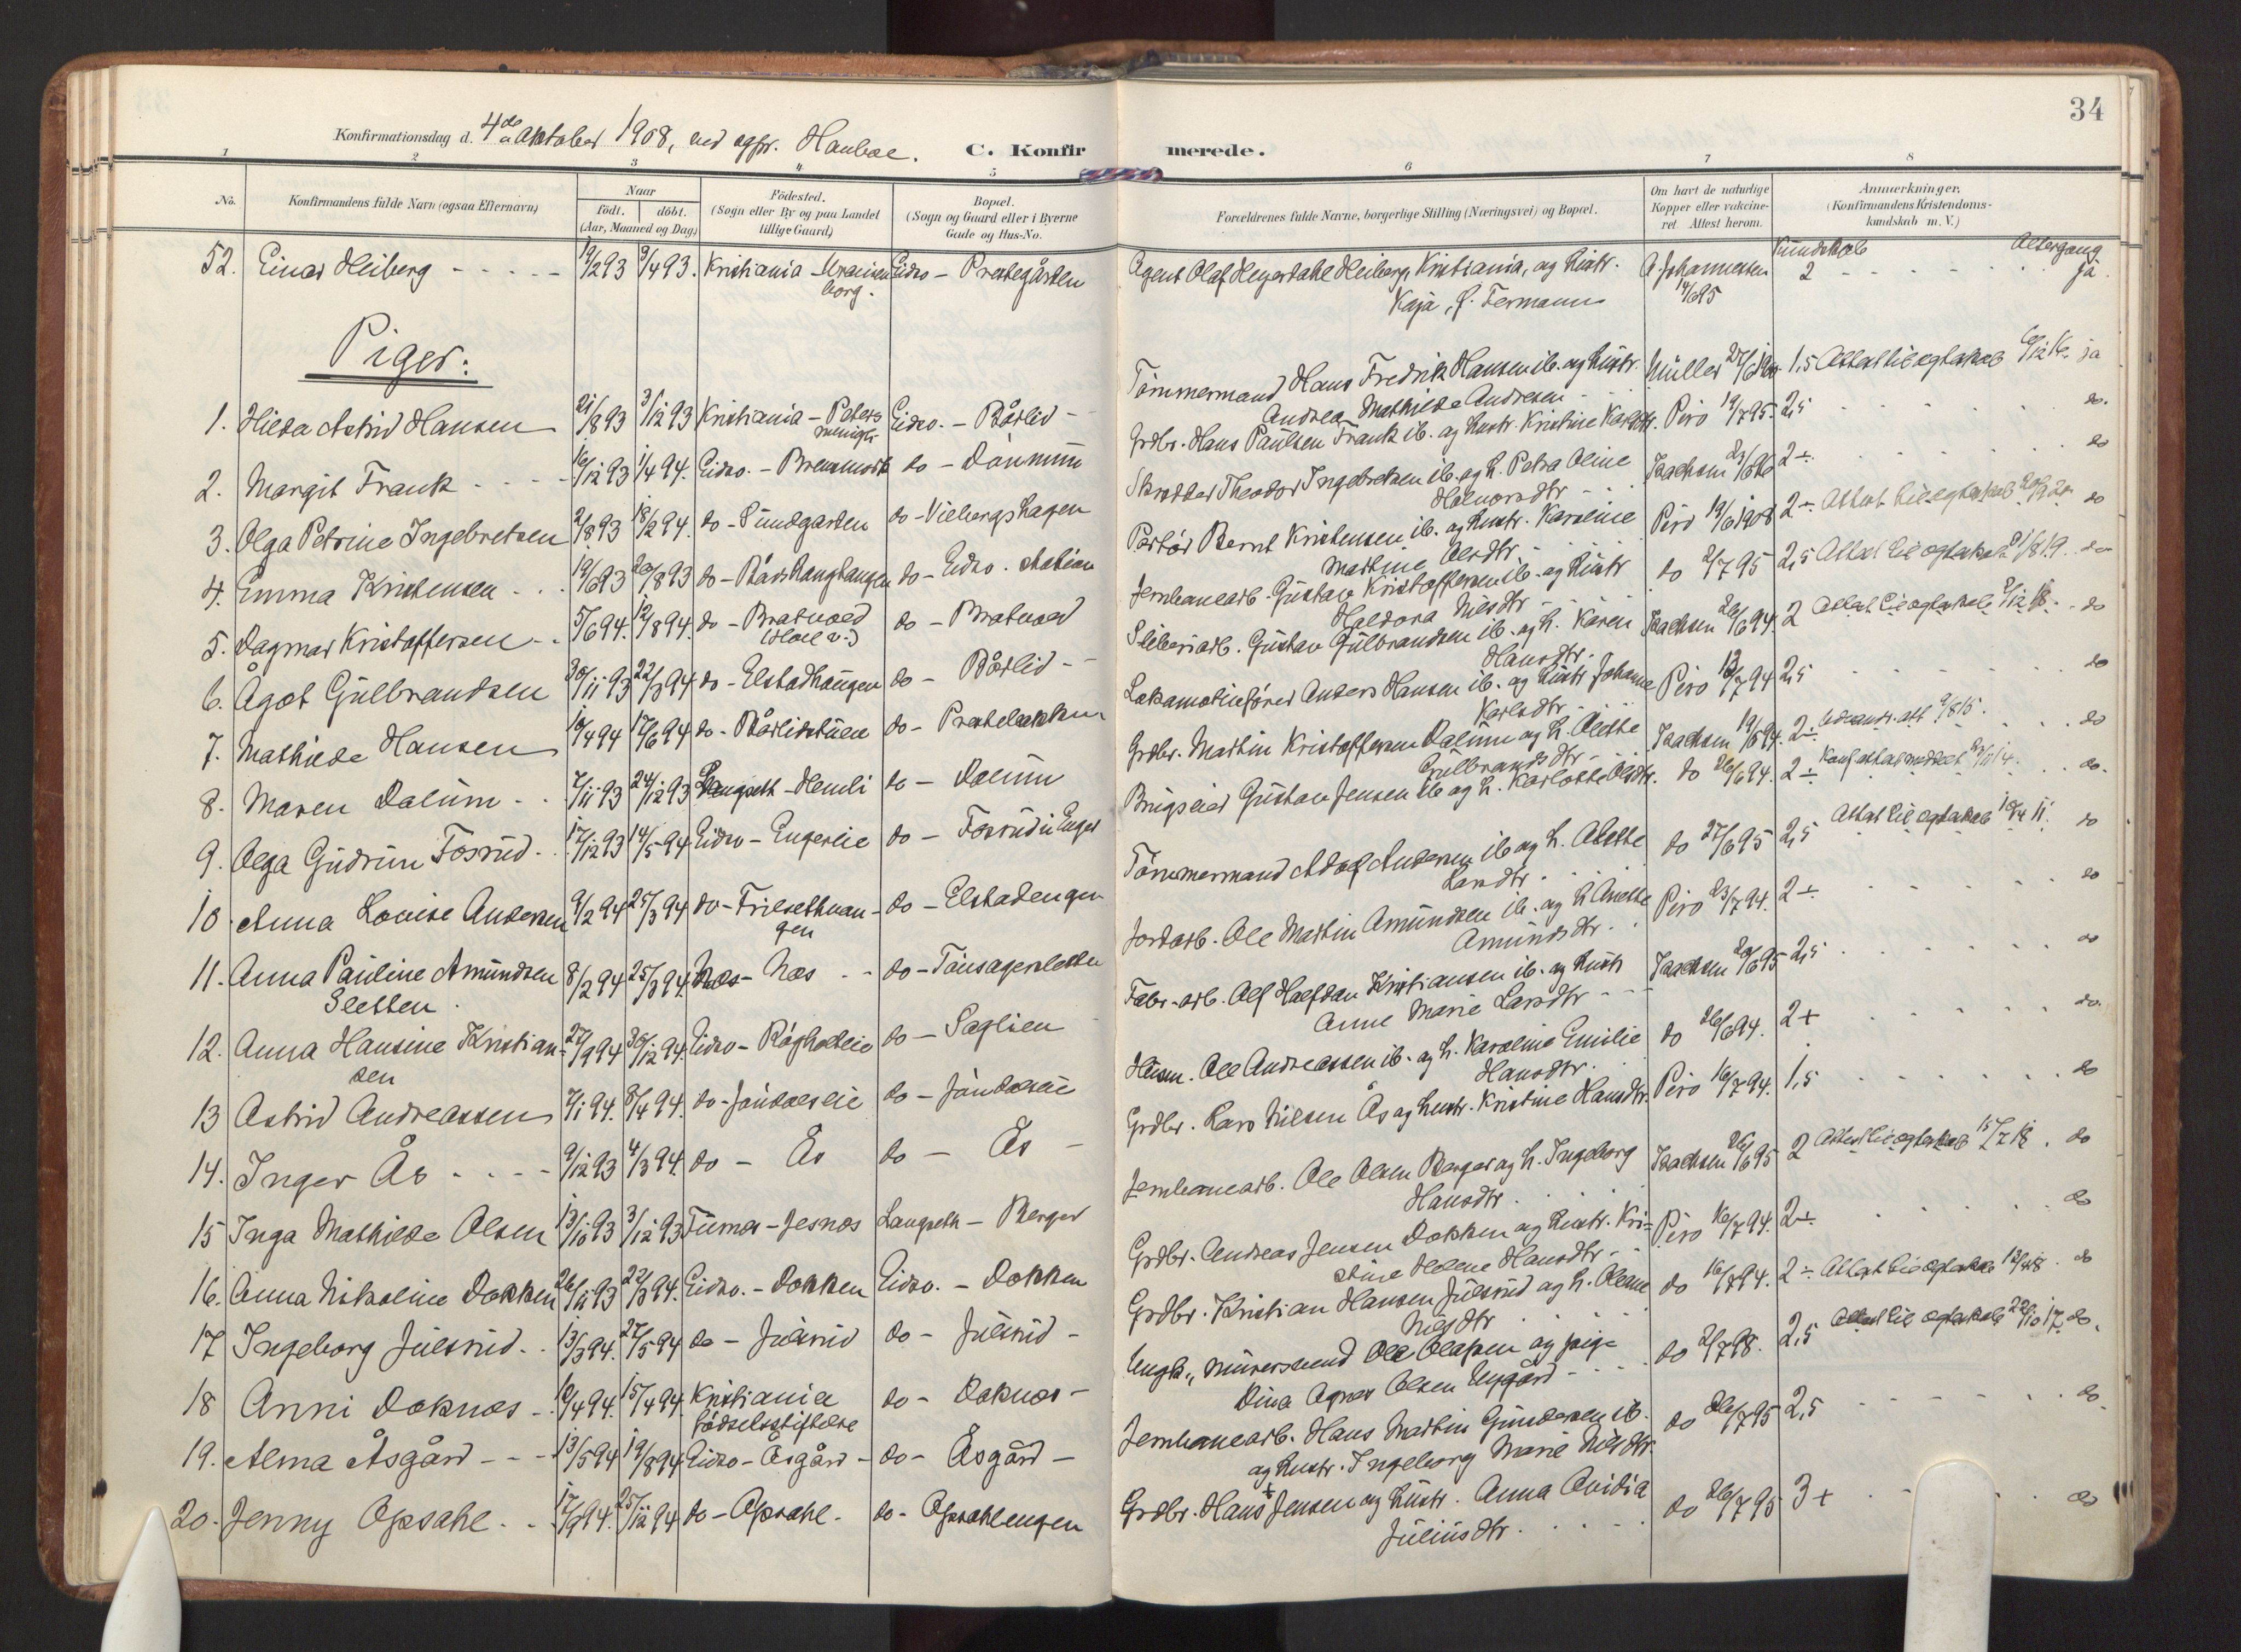 34
Konfirmationsdag d. 4de Oktober 1908, ved sgpr. Hauboe.
C. Konfirmerede.
1 2 3 4 5 6 7 8
No.
Konfirmandens fulde Navn (ogsaa Efternavn)
Naar
født. døbt.
(Aar, Maaned og Dag)
Födested.
(Sogn eller By og paa Landet
tillige Gaard)
Bopæl.
(Sogn og Gaard eller i Byerne
Gade og Hus-No.
Forældrenes fulde Navne, borgerlige Stilling (Næringsvei) og Bopæl.
Om havt de naturlige
Kopper eller vaccine-
ret Attest herom.
Anmærkninger.
(Konfirmandens Kristendoms-
kundskab m. V.)
Kundskab Altergang
52. Einar Heiberg 19/2 93 9/4 93. Kristiania - Uranien Eidsv. - Prestegården Agent Olaf Heyerdahl Heiberg, Kristiania, og hustr. A. Johannessen 2 ja.
borg. Kaja, f. Fermann 14/6 95
Piger:
1. Hilda Astrid Hansen 21/8 93 3/12 93 Kristiania - Peters Eidsv. - Bårlid Tömmermand Hans Fredrik Hansen ib. og hustr. Müller 27/6 1900 1,5 Attest til egteskab 6/12 16. ja
menigh. Andrea Mathilde Andresen
2. Margit Frank 16/12 93 1/4 94. Eidsv. - Brensmork do - Dönnum Grdbr. Hans Paulsen Frank ib. og hustr. Kristine Karlsdtr. Piro 19/7 95. 2,5 do.
3. Olga Petrine Ingebretsen 2/8 93 18/2 94. do - Sundgarden do - Vilbergshagen Skredder Theodor Ingebretsen ib. og h. Petra Oline Isachsen 23/6 96 2÷ do
Halvorsdtr
4. Emma Kristensen 19/6 93 20/8 93 do - Råsshaughaugen do - Eidsv. station Portör Bernt Kristensen ib. og hustr. Karoline Piro 19/6 1908 2÷ Attest til egteskab 20/9 20 do
Martine Olsdtr.
5. Dagmar Kristoffersen 5/6 94. 12/8 94. do - Bratvold do - Bratvold Jernbanearb. Gustav Kristoffersen ib. og hustr do 2/7 95 2,5 Attest til egteskab 21/8 19. do
Haldora Nilsdtr
6. Ågot Gulbrandsen 30/11 93 22/3 94 do - Elstadhaugen do - Bårlid - Sliberiarb. Gustav Gulbrandsen ib. og h. Karen Isachsen 26/6 94. 2 Attest til egteskab 2/12 18. do
Hansdtr.
7. Mathilde Hansen 10/4 94 17/6 94 do - Bårlidstuen do - Prestebakken Lokomotivförer Anders Hansen ib. og hustr Johanne Piro 13/7 94 2,5 do
Karlsdtr
8. Maren Dalum 7/11 93 24/12 93 Langseth - Hemli do - Dalum Grdbr. Martin Kristoffersen Dalum og h. Olette Isachsen 19/6 94. 2÷ Udvandr. att 9/8 15. do
Gulbrandsdtr
9. Olga Gudrun Fosrud 17/12 93 14/5 94 Eidsv - Engerlie do - Fosrud i Enger Brugseier Gustav Jensen ib og h. Karlotte Olsdtr. do 26/6 94. 2÷ Konf. attest meddelt do.
10. Anna Lovise Andersen 9/2 94 25/3 94 do - Frilsethaugen do - Elstadengen Tömmermand Adolf Andersen ib og h. Olette do 27/6 95 2,5 Attest til egteskab 10/4 11. do
Larsdtr.
11. Anna Pauline Amundsen 8/2 94 25/3 94. Næs - Næs do - Tönsagersletten Jordarb. Ole Martin Amundsen ib. og h Anette Piro 23/7 94. 2÷ do
Sletten. Amundsdtr.
12. Anna Hansine Kristian- 27/9 94 30/12 94. Eidsv - Rögholtlie do - Saglien Fabr.-arb. Alf Halfdan Kristiansen ib. og hustr Isachsen 20/6 95 2,5 do
sen Anne Marie Larsdtr
13 Astrid Andreassen 7/1 94. 8/4 94. do - Jöndalslie do - Jöndalslie Husm. Ole Andreassen ib. og h. Karoline Emilie do 26/6 94. 2+ do.
Hansdtr.
14. Inger Ås 9/12 93 4/3 94. do - Ås do - Ås - Grdbr. Lars Nilsen Ås og hustr. Kristine Hansdtr. Piro 16/7 94. 1,5 do
15 Inga Mathilde Olsen 13/10 93 3/12 93 Furnes - Jesnes Langseth - Berger Jernbanearb. Ole Olsen Berger og h. Ingeborg Isachsen 26/6 95 2 Attest til egteskab 15/7 18. do
Hansdtr.
16. Anna Nikoline Dokken 26/11 93 22/3 94. Eidsv. - Dokken Eidsv. - Dokken Grdbr. Andreas Jensen Dokken og hustr. Kri= Piro 16/7 94. 2÷ do
stine Helene Hansdtr.
17 Ingeborg Julsrud 13/3 94. 27/5 94 do - Julsrud do - Julsrud - Grdbr. Kristian Hansen Julsrud og h. Oleane do 16/7 94. 2÷ Attest til egteskab do
Nilsdtr
18 Anni Doknæs 10/4 94. 15/4 94. Kristiania do - Doknæs - Ungk., murersvend Ole Olafsen og pige do 2/7 98. 2,5 Attest til egteskab 22/10 17. do.
födselsstiftelse Dina Agnes Olsen Nygård
19. Alma Åsgård 13/5 94 19/8 94 Eidsv - Åsgård - do - Åsgård - Jernbanearb. Hans Martin Gundersen ib. do 26/7 95 2,5 do.
og hustr. Ingeborg Marie Nilsdtr.
20. Jenny Opsahl 17/9 94. 25/12 94 do - Opsahl. do - Opsahlengen Grdbr. Hans Jensen og hustr. Anna Ovidia do 26/7 95 3+ do
Juliusdtr.